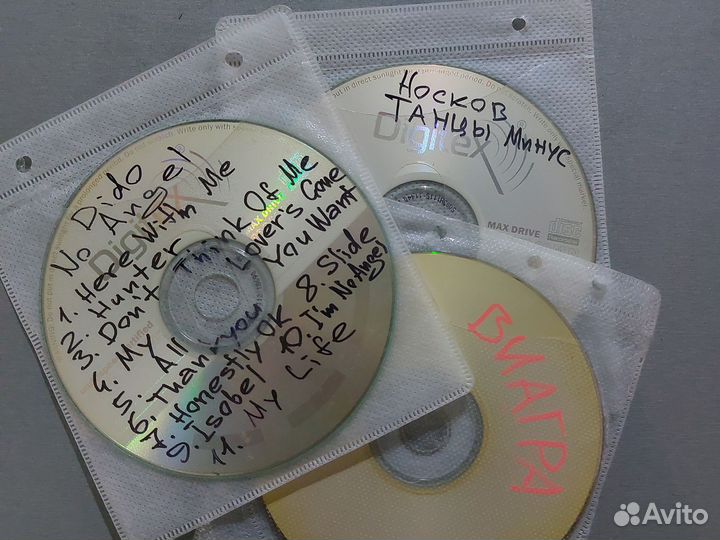 Dido
No Angel
1. Here With Me
2. Hunter
3. Don't Think Of Me
4. My Lover's Gone
5. All You Want
6. Thankyou
7. Honestly OK 8. Slide
9. Isobel 10. I'm No Angel
11. My Life
Digitex
MAX DRIVE
Носков
ТАНЦЫ МИНУС
Digitex
MAX DRIVE
ВИАГРА
Avito